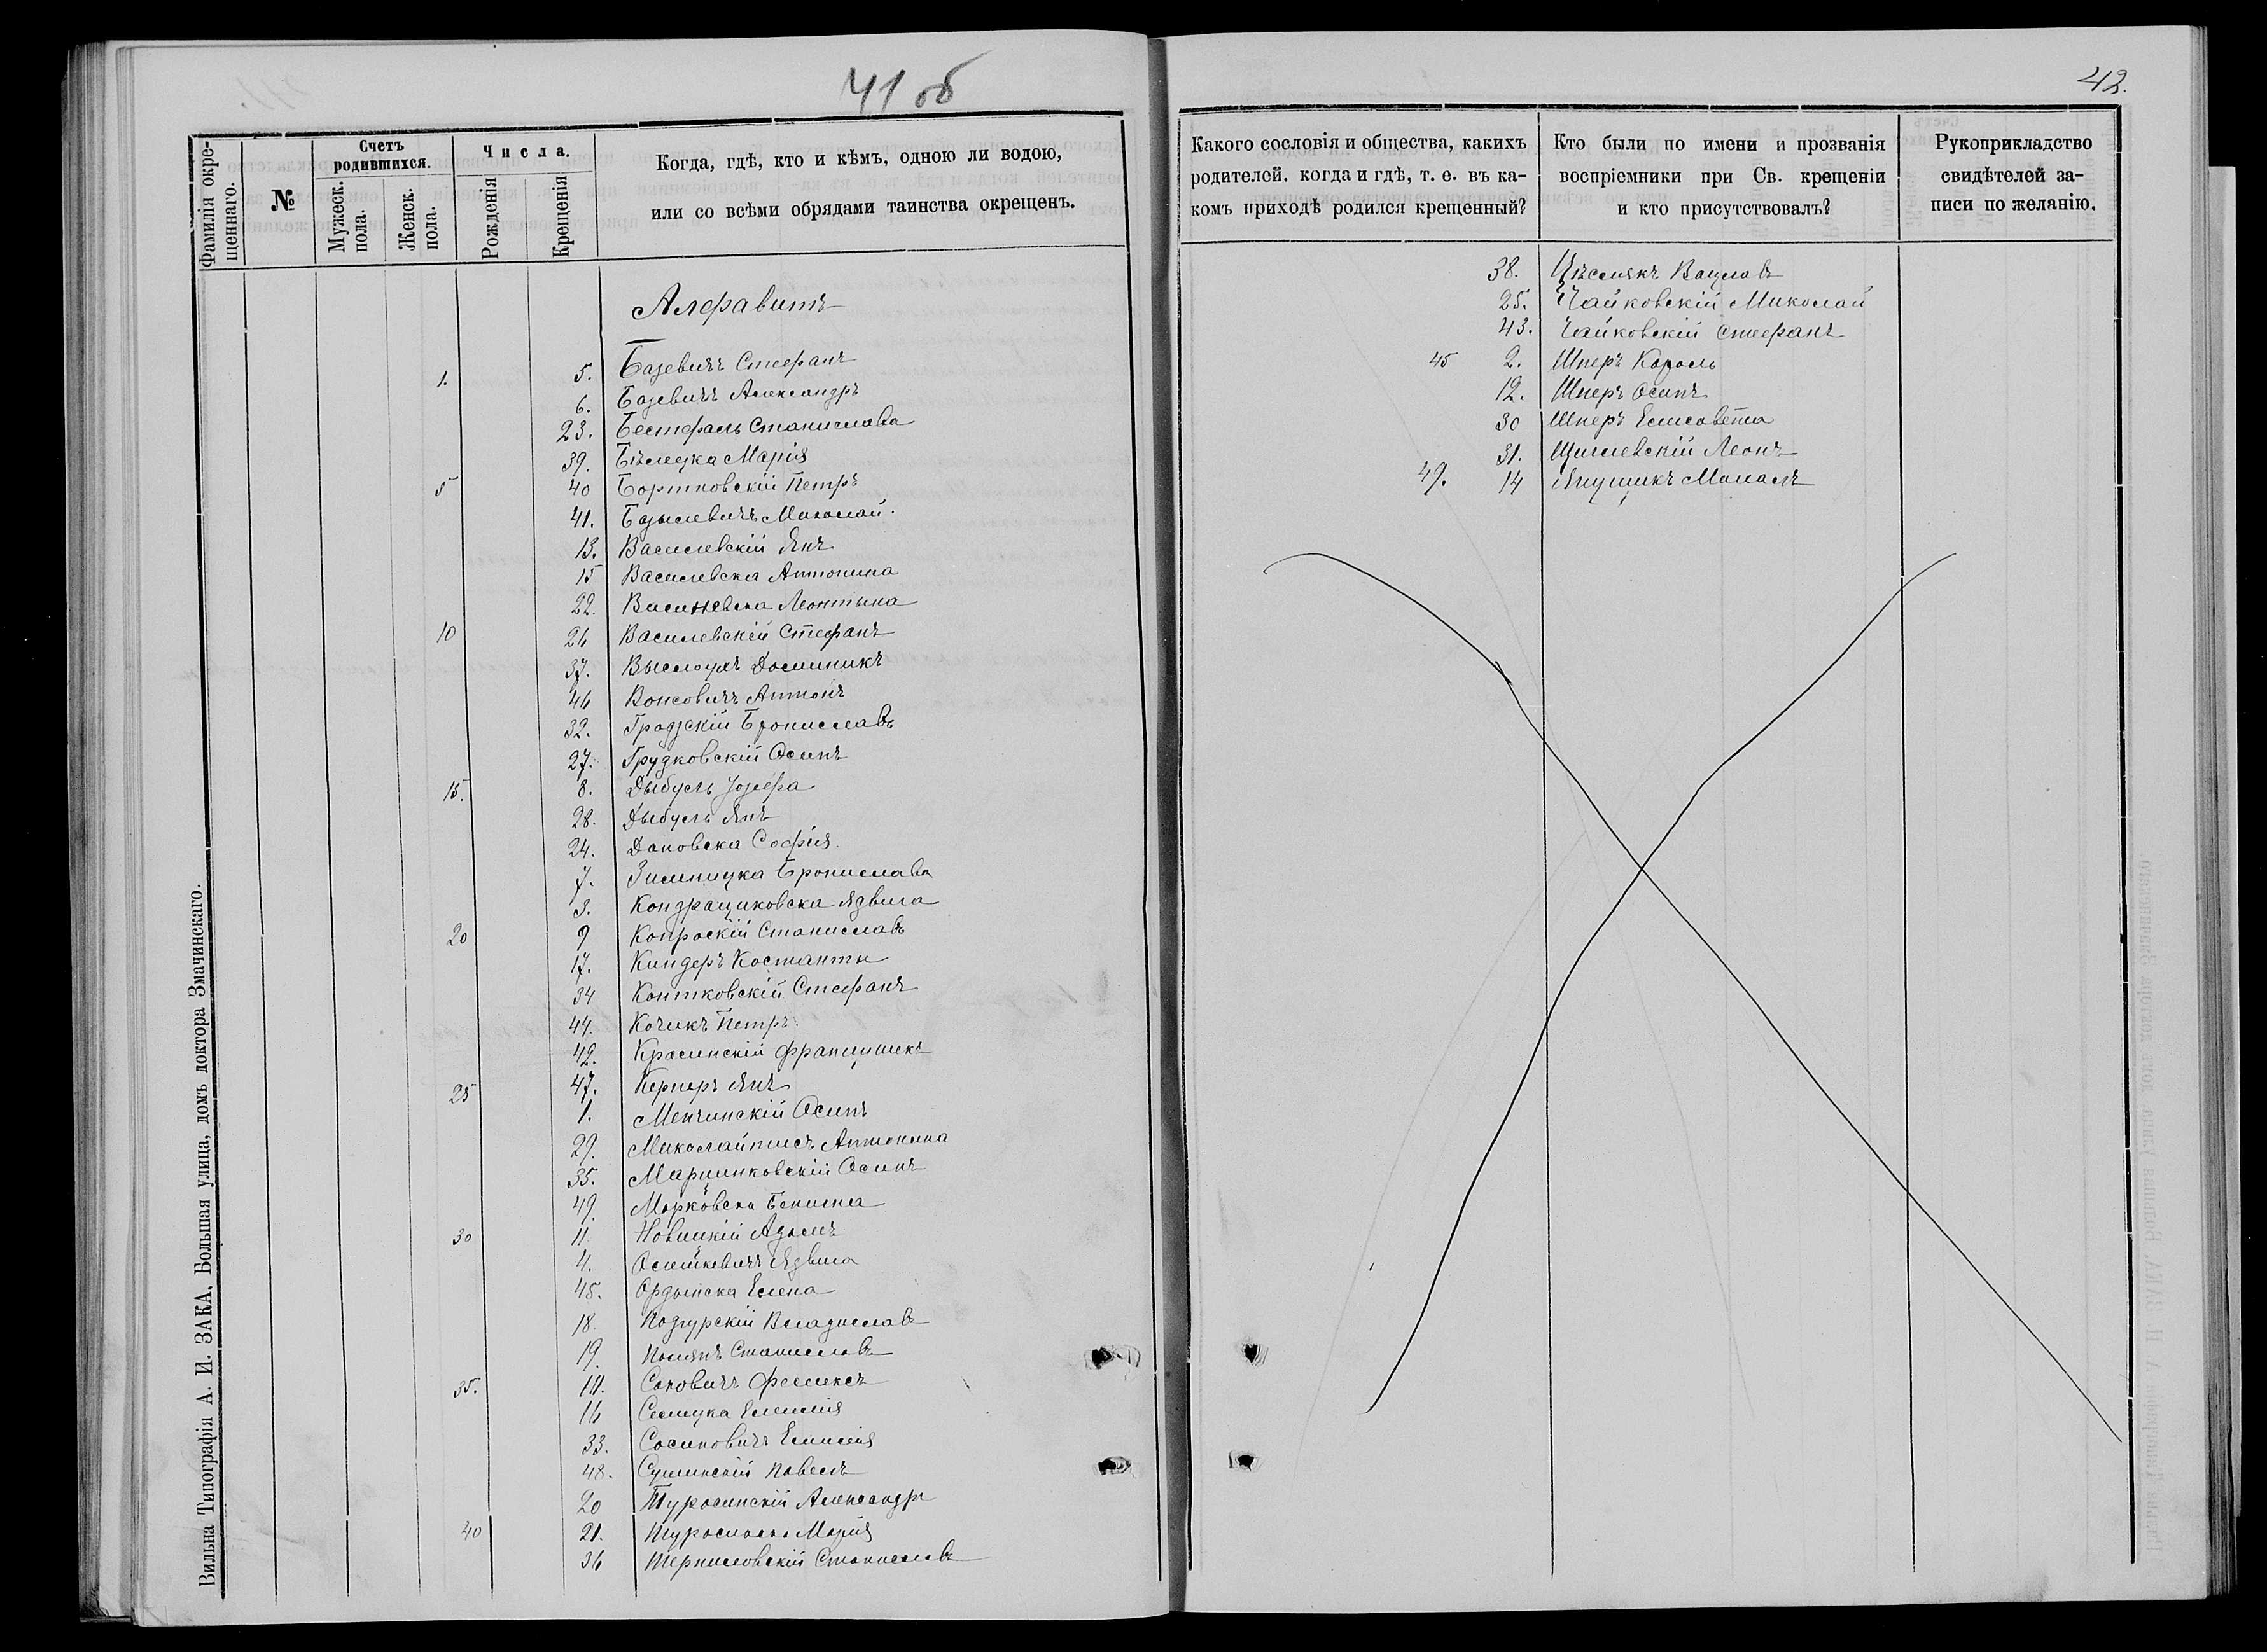 41 об
42.
Фамилія окре-
щеннаго.
№
Счетъ
родившихся.
Мужеск.
пола.
Женск.
пола.
Числа.
Рожденія
Крещенія
Когда, гдѣ, кто и кѣмъ, одною ли водою,
или со всѣми обрядами таинства окрещенъ.
Алфавитъ
1. 5. Базевичъ Стефанъ
6. Базевичъ Александръ
23. Бестфаль Станислава
39. Бѣлецка Марія
5 40 Бортновскій Петръ
41. Базылевичъ Миколай.
13. Василевскій Янъ
15 Василевска Антонина
22. Леонтына
10 26 Василевскій Стефанъ
37. Выслоухъ Доминикъ
46 Вонсовичъ Антонъ
32. Гродзскій Брониславъ
27. Грудковскій Осипъ
15. 8. Дыбусь Јозефа
28. Дыбусь Янъ
24. Дановска Софія
7. Зимницка Бронислава
3. Кондрациковска Ядвига
20 9 Копроскій Станиславъ
17. Киндеръ Костанты
34 Контковскій Стефанъ
44. Кочикъ Петръ
42. Красинскій Францишекъ
25 47. Кернеръ Янъ
1. Менчинскій Осипъ
29. Миколайтисъ Антонина
35. Марцинковскій Осипъ
49. Марковска Бенигна
30 11 Новицкій Адамъ
4. Осешкевичъ Ядвига
45. Ордынска Елена
18. Подгурскій Владиславъ
19. Станиславъ
35. 10. Саковичъ Феликсъ
16 Емилія
33. Сосиновичъ Емилія
48. Сушинскій Павелъ
20 Туросинскій Александръ
40 21. Туросинска Марія
36 Станиславъ
Вильна Типографія А. И. ЗАКА, Большая улица, домъ доктора Змачинскаго.
Какого сословія и общества, какихъ
родителей. когда и гдѣ, т. е. въ ка-
комъ приходѣ родился крещенный?
Кто были по имени и прозванія
воспріемники при Св. крещеніи
и кто присутствовалъ?
Рукоприкладство
свидѣтелей за-
писи по желанію.
38. Цѣслякъ Вацлавъ
25. Чайковскій Миколай
43. Чайковскій Стефанъ
45 2. Шперъ Кароль
12. Шперъ Осипъ
30 Шперъ Елисовета
31. Щиглевскій Леонъ
49. 14 Янушикъ